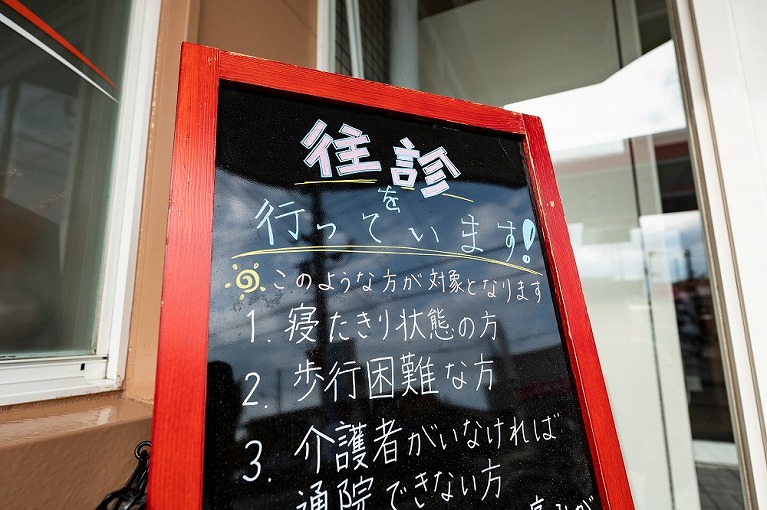 往診
を
行っています!
このような方が対象となります
1. 寝たきり状態の方
2. 歩行困難な方
3. 介護者がいなければ
通院できない方